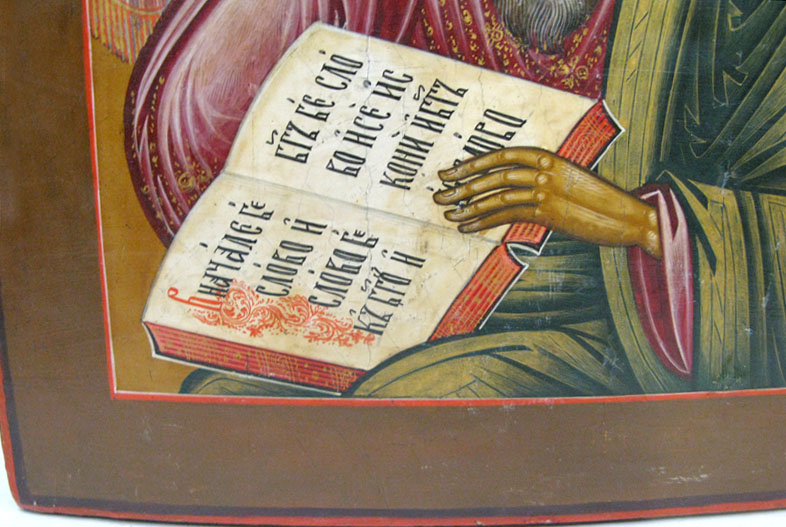 Внача́ле бѐ
сло́во и҆
сло́во бѣ
къ бг҃ѹ и҆
бг҃ъ бе́ сло́
во и҆ се́ и҆с
кони̂